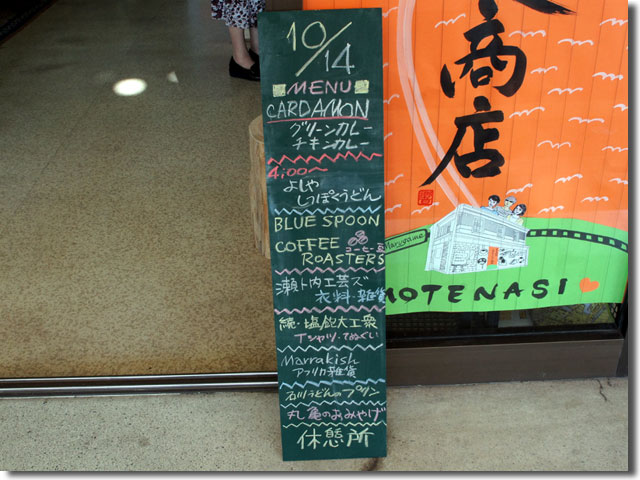 10/14
MENU
CARDAMON
グリーンカレー
チキンカレー
4:00〜
よしや
しっぽくうどん
BLUE SPOON
COFFEE
コーヒー豆
ROASTERS
瀬ト内工芸ズ
衣料・雑貨
続・塩飽大工衆
Tシャツ・てぬぐい
Marrakish
アフリカ雑貨
石川うどんのプリン
丸亀のおみやげ
休憩所
商店
MOTENASI